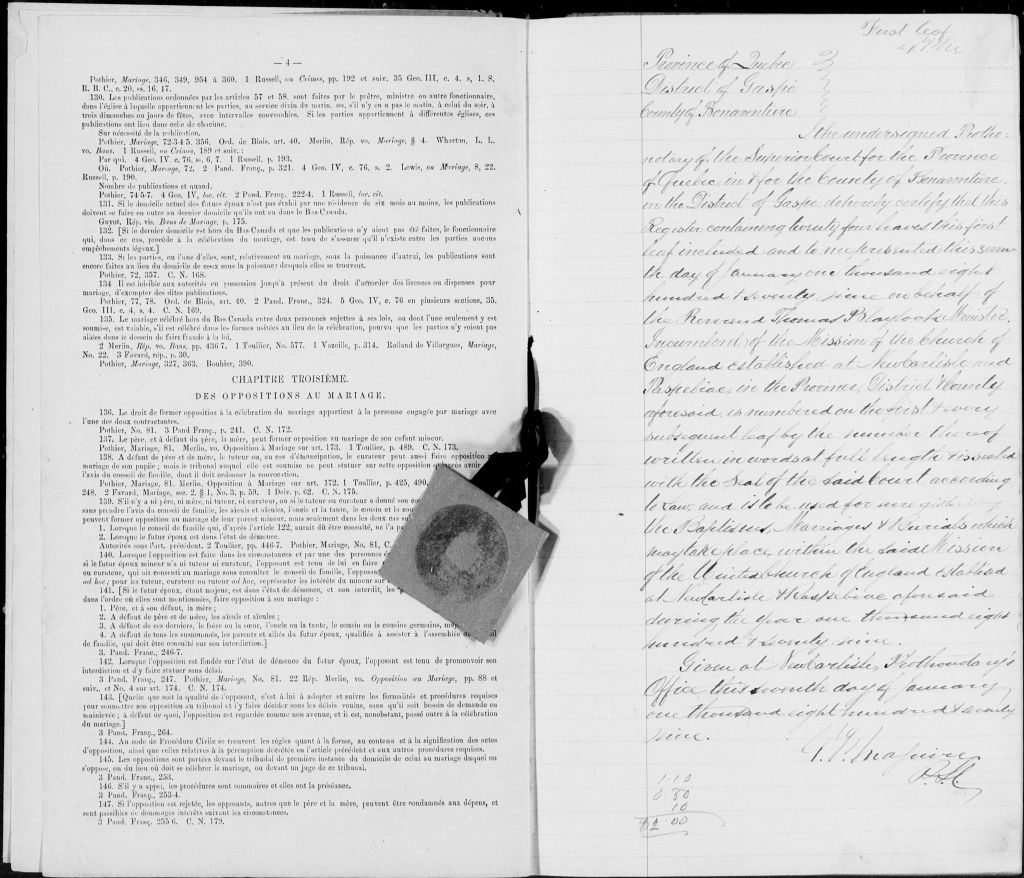 — 4 —
Pothier, Mariage, 346, 349, 954 à 360. 1 Russell, on Crimes, pp. 192 et suiv. 35 Geo. III, c. 4. s, 1. S,
R. B. C., c. 20, ss. 16, 17.
130. Les publications ordonnées par les articles 57 et 58, sont faites par le prêtre, ministre ou autre fonctionnaire,
dans l'église à laquelle appartiennent les parties, au service divin du matin, ou, s'il n'y en a pas le matin, à celui du soir, à
trois dimanches ou jours de fêtes, avec intervalles convenables. Si les parties appartiennent à différentes églises, ces
publications ont lieu dans celle de chacune.
Sur nécessité de la publication.
Pothier, Mariage, 72-3-4 5, 356. Ord. de Blois, art. 40. Merlin, Rép. vo. Mariage, § 4. Wharton, L. L.
vo. Bans. 1 Russell, on Crimes, 189 et suiv. :
Par qui. 4 Geo. IV. c. 76, ss. 6, 7. 1 Russell, p. 193.
Où. Pothier, Mariage, 72. 2 Pand. Franç., p. 321. 4 Geo. IV, c. 76, s. 2. Lewis, on Mariage, 8, 22.
Russell, p. 190.
Nombre de publications et quand.
Pothier, 74 5-7. 4 Geo. IV, loc. cit. 2 Pand. Franç., 222-4. 1 Russell, loc. cit.
131. Si le domicile actuel des futurs époux n'est pas établi par une résidence de six mois au moins, les publications
doivent se faire en outre au dernier domicile qu'ils ont eu dans le Bas-Canada.
Guyot, Rép. vis. Bans de Mariage, p. 175.
132. [Si le dernier domicile est hors du Bas-Canada et que les publications n'y aient pas été faites, le fonctionnaire
qui, dans ce cas, procède à la célébration du mariage, est tenu de s'assurer qu'il n'existe entre les parties aucuns
empêchements légaux.]
133. Si les parties, ou l'une d'elles, sont, relativement au mariage, sous la puissance d'autrui, les publications sont
encore faites au lieu du domicile de ceux sous la puissance desquels elles se trouvent.
Pothier, 72, 357. C. N. 168.
134 Il est loisible aux autorités en possession jusqu'à présent du droit d'accorder des licences ou dispenses pour
mariage, d'exempter des dites publications.
Pothier, 77, 78. Ord. de Blois, art. 40. 2 Pand. Franc., 324. 5 Geo. IV, c. 76 en plusieurs sections, 35.
Geo. III, c. 4, s. 4. C. N. 169.
135. Le mariage célébré hors du Bas-Canada entre deux personnes sujettes à ses lois, ou dont l'une seulement y est
soumise, est valable, s'il est célébré dans les formes usitées au lieu de la célébration, pourvu que les parties n'y soient pas
allées dans le dessein de faire fraude à la loi.
2 Merlin, Rép. vo. Bans, pp. 436 7. 1 Toullier, No. 577. 1 Vazeille, p. 314. Rolland de Villargues, Mariage,
No. 22. 3 Favard, rép., p. 30.
Pothier, Mariage, 327, 363. Bouhier, 390.
CHAPITRE TROISIÈME.
DES OPPOSITIONS AU MARIAGE.
136. Le droit de former opposition à la célébration du mariage appartient à la personne engagée par mariage avec
l'une des deux contractantes.
Pothier, No. 81. 3 Pand Franç., p. 241. C. N. 172.
137. Le père, et à défaut du père, la mère, peut former opposition au mariage de son enfant mineur.
Pothier, Mariage, 81. Merlin, vo. Opposition à Mariage sur art. 173. 1 Toullier, p. 489. C. N. 173.
138. A défaut de père et de mère, le tuteur ou, au cas d'émancipation, le curateur peut aussi faire opposition au
mariage de son pupile; mais le tribunal auquel elle est soumise ne peut statuer sur cette opposition qu'après avoir
l'avis du conseil de famille, dont il doit ordonner la convocation.
Pothier, Mariage, 81. Merlin, Opposition à Mariage sur art. 172. 1 Toullier, p. 425, 490,
248. 2 Favard, Mariage, sec. 2, § 1, No. 3, p. 59. 1 Delv. p. 62. C. N. 175.
139. S'il n'y a ni père, ni mère, ni tuteur, ni curateur, ou si le tuteur ou curateur a donné son
sans prendre l'avis du conseil de famille, les aïeuls et aïeules, l'oncle et la tante, le cousin et la
peuvent former opposition au mariage de leur parent mineur, mais seulement dans les deux cas
1. Lorsque le conseil de famille qui, d'après l'article 122, aurait dû être consulté, ne l'a
2. Lorsque le futur époux est dans l'état de démence.
Autorités sous l'art. précédent. 2 Toullier, pp. 446-7. Pothier, Mariage, No. 81, C.
140. Lorsque l'opposition est faite dans les circonstances et par une des personnes
si le futur époux mineur n'a ni tuteur ni curateur, l'opposant est tenu de lui en faire
ou curateur, qui ait consenti au mariage sans consulter le conseil de famille, l'opposant
ad hoc; pour les tuteur, curateur ou tuteur ad hoc, représenter les intérêts du mineur sur
141. [Si le futur époux, étant majeur, est dans l'état de démence, et non interdit, les
dans l'ordre où elles sont mentionnées, faire opposition à son mariage :
1. Père, et à son défaut, la mère ;
2. A défaut de père et de mère, les aïeuls et aïeules ;
3. A défaut de ces derniers, le frère ou la sœur, l'oncle ou la tante, le cousin ou la cousine germains,
4. A défaut de tous les susnommés, les parents et alliés du futur époux, qualifiés à assister à l'assemblée
de famille, qui doit être consulté sur son interdiction.]
3. Pand. Franç., 246-7.
142. Lorsque l'opposition est fondée sur l'état de démence du futur époux, l'opposant est tenu de promouvoir son
interdiction et d'y faire statuer sans délai.
3 Pand Franç., 247. Pothier, Mariage, No. 81. 22 Rép. Merlin, vo. Opposition au Mariage, pp. 88 et
suiv., et No. 4 sur art. 174. C. N. 174.
143. [Quelle que soit la qualité de l'opposant, c'est à lui à adopter et suivre les formalités et procédures requises
pour soumettre son opposition au tribunal et l'y faire décider sous les délais voulus, sans qu'il soit besoin de demande en
mainlevée ; à défaut de quoi, l'opposition est regardée comme non avenue, et il est, nonobstant, passé outre à la célébration
du mariage.]
3 Pand. Franc., 264.
144. Au code de Procédure Civile se trouvent les règles quant à la forme, au contenu et à la signification des actes
d'opposition, ainsi que celles relatives à la péremption décrétée en l'article précédent et aux autres procédures requises.
145. Les oppositions sont portées devant le tribunal de première instance du domicile de celui au mariage duquel on
s'oppose, ou du lieu où doit se célébrer le mariage, ou devant un juge de ce tribunal.
3 Pand. Franc., 253.
146. S'il y a appel, les procédures sont sommaires et elles ont la préséance.
3 Pand. Franc., 253-4.
147. Si l'opposition est rejetée, les opposants, autres que le père et la mère, peuvent être condamnés aux dépens, et
sont passibles de dommages intérêts suivant les circonstances.
3 Pand. Franç. 255 6. C. N. 179.
First leaf
Province of Quebec
District of Gaspé
County of Bonaventure
I the undersigned Protho-
notary of the Superior Court for the Province
of Quebec, in & for the County of Bonaventure,
in the District of Gaspé, do hereby certify that this
Register containing twenty four leaves this first
leaf included and to me presented this seven
th day of January one thousand eight
hundred & seventy nine on behalf of
the Reverend Thomas Blaylock Minister,
Incumbent of the Mission of the Church of
England established at New Carlisle and
Paspebiac, in the Province, District & County
aforesaid, is numbered on the first & every
subsequent leaf by the number thereof
written in words at full length & is sealed
with the Seal of the said Court according
to Law, and is to be used for
the Baptisms, Marriages & Burials which
may take place within the said Mission
of the United Church of England established
at New Carlisle & Paspebiac aforesaid
during the year one thousand eight
hundred & seventy nine.
Given at New Carlisle, Prothonotary's
Office this seventh day of January
one thousand eight hundred & seventy
nine.
Maguire
P. S. C.
1.10
0.80
10
$2.00